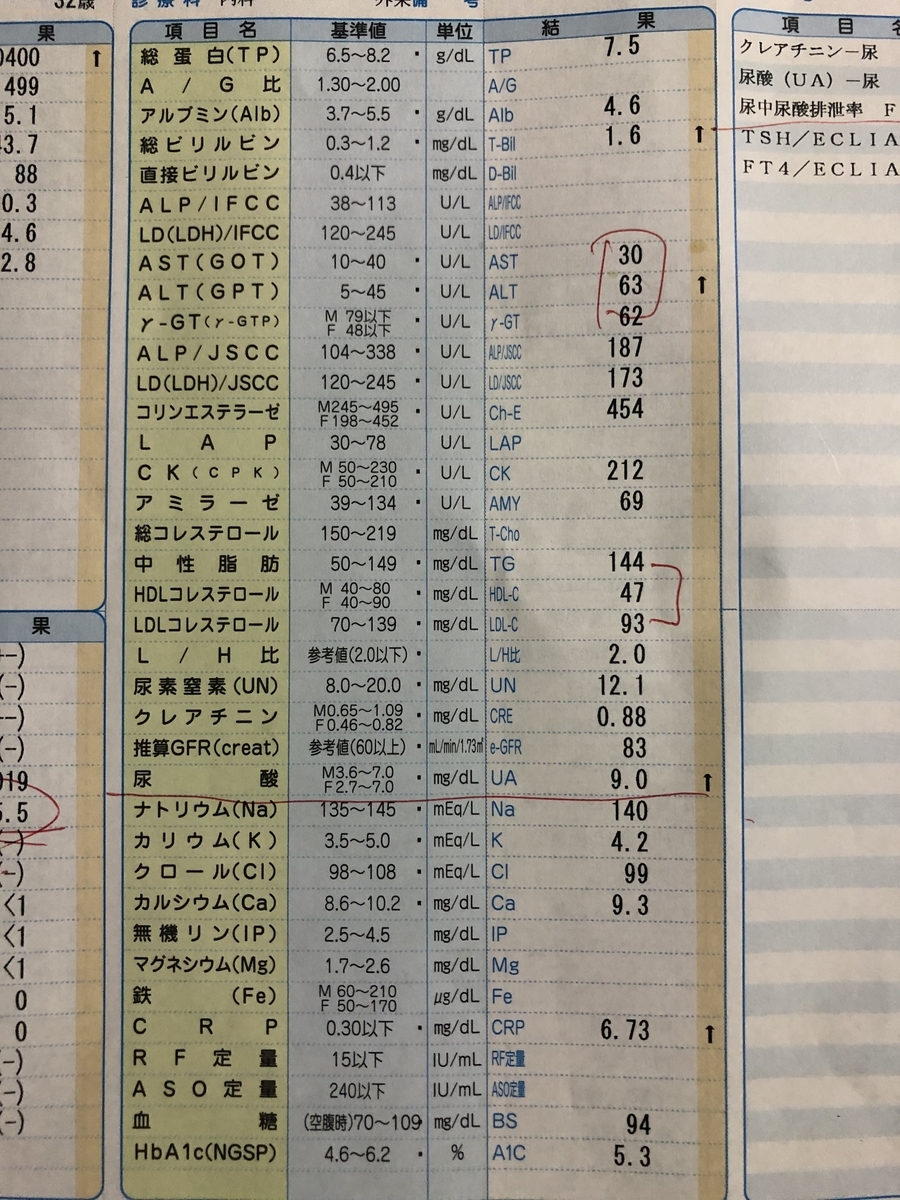 32歳 診療科 内科
果
0400 ↑
499
5.1
43.7
88
0.3
4.6
2.8
果
(-)
(-)
(-)
5.5
(-)
(-)
<1
<1
<1
0
0
(-)
(-)
(-)
項目名 基準値 単位 結果
総蛋白(TP) 6.5～8.2 g/dL TP 7.5
A/G比 1.30～2.00 A/G
アルブミン(Alb) 3.7～5.5 g/dL Alb 4.6
総ビリルビン 0.3～1.2 mg/dL T-Bil 1.6 ↑
直接ビリルビン 0.4以下 mg/dL D-Bil
ALP/IFCC 38～113 U/L ALP/IFCC
LD(LDH)/IFCC 120～245 U/L LD/IFCC
AST(GOT) 10～40 U/L AST 30
ALT(GPT) 5～45 U/L ALT 63 ↑
γ-GT(γ-GTP) M 79以下 F 48以下 U/L γ-GT 62
ALP/JSCC 104～338 U/L ALP/JSCC 187
LD(LDH)/JSCC 120～245 U/L LD/JSCC 173
コリンエステラーゼ M245～495 F198～452 U/L Ch-E 454
LAP 30～78 U/L LAP
CK(CPK) M 50～230 F 50～210 U/L CK 212
アミラーゼ 39～134 U/L AMY 69
総コレステロール 150～219 mg/dL T-Cho
中性脂肪 50～149 mg/dL TG 144
HDLコレステロール M 40～80 F 40～90 mg/dL HDL-C 47
LDLコレステロール 70～139 mg/dL LDL-C 93
L/H比 参考値(2.0以下) L/H比 2.0
尿素窒素(UN) 8.0～20.0 mg/dL UN 12.1
クレアチニン M0.65～1.09 F0.46～0.82 mg/dL CRE 0.88
推算GFR(creat) 参考値(60以上) mL/min/1.73㎡ e-GFR 83
尿酸 M3.6～7.0 F2.7～7.0 mg/dL UA 9.0 ↑
ナトリウム(Na) 135～145 mEq/L Na 140
カリウム(K) 3.5～5.0 mEq/L K 4.2
クロール(Cl) 98～108 mEq/L Cl 99
カルシウム(Ca) 8.6～10.2 mg/dL Ca 9.3
無機リン(IP) 2.5～4.5 mg/dL IP
マグネシウム(Mg) 1.7～2.6 mg/dL Mg
鉄(Fe) M 60～210 F 50～170 μg/dL Fe
CRP 0.30以下 mg/dL CRP 6.73 ↑
RF定量 15以下 IU/mL RF定量
ASO定量 240以下 IU/mL ASO定量
血糖 (空腹時)70～109 mg/dL BS 94
HbA1c(NGSP) 4.6～6.2 % A1C 5.3
項目名
クレアチニン－尿
尿酸（UA）－尿
尿中尿酸排泄率 F
TSH／ECLIA
FT4／ECLIA